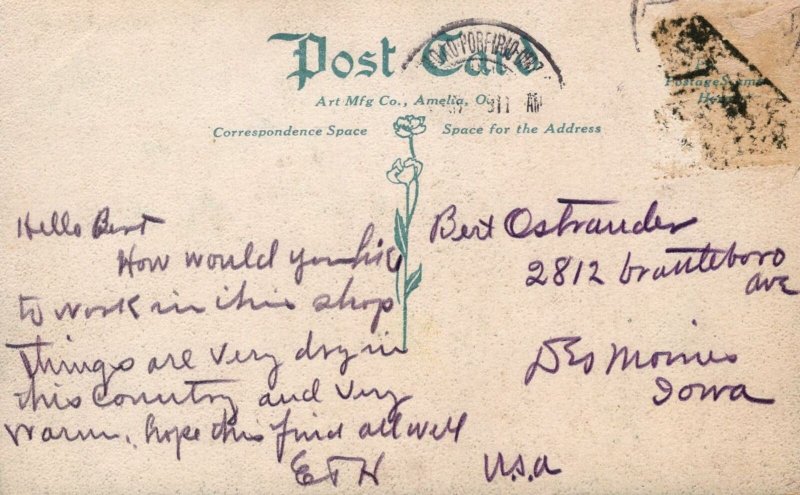 Post Card
Art Mfg Co., Amelia, O.
Correspondence Space
Space for the Address
Postage Stamp
Here
911 AM
Hello Bert
How would you like
to work in this shop
Things are very dry in
this country and very
warm, hope this find all well
E T H
Bert Ostrander
2812 brattleboro
ave
Des Moines
Iowa
U.S.a